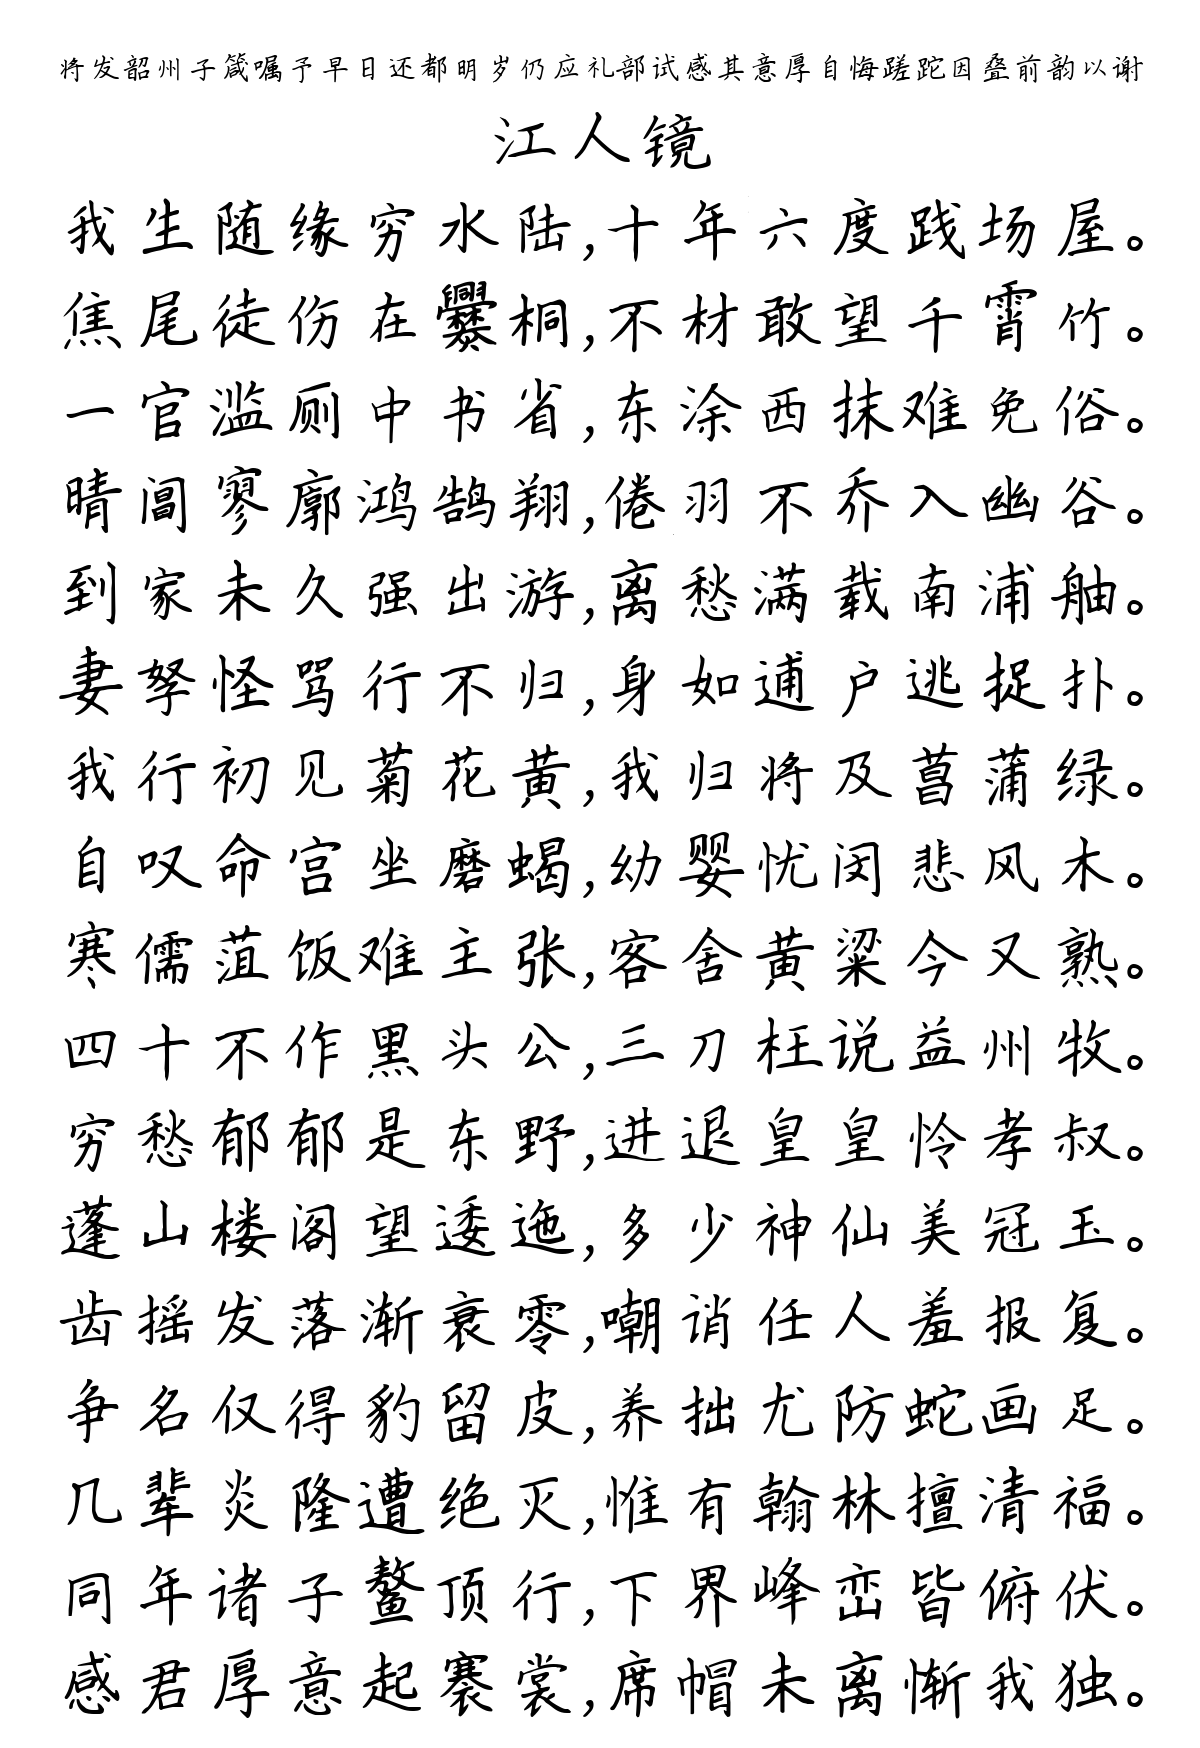 将发韶州子箴嘱予早日还都明岁仍应礼部试感其意厚自悔蹉跎因叠前韵以谢
江人镜
我生随缘穷水陆,十年六度践场屋。
焦尾徒伤在爨桐,不材敢望千霄竹。
一官滥厕中书省,东涂西抹难免俗。
晴阊寥廓鸿鹄翔,倦羽不乔入幽谷。
到家未久强出游,离愁满载南浦舳。
妻孥怪骂行不归,身如逋户逃捉扑。
我行初见菊花黄,我归将及菖蒲绿。
自叹命宫坐磨蝎,幼婴忧闵悲风木。
寒儒菹饭难主张,客舍黄粱今又熟。
四十不作黑头公,三刀枉说益州牧。
穷愁郁郁是东野,进退皇皇怜孝叔。
蓬山楼阁望逶迤,多少神仙美冠玉。
齿摇发落渐衰零,嘲诮任人羞报复。
争名仅得豹留皮,养拙尤防蛇画足。
几辈炎隆遭绝灭,惟有翰林擅清福。
同年诸子鳌顶行,下界峰峦皆俯伏。
感君厚意起褰裳,席帽未离惭我独。